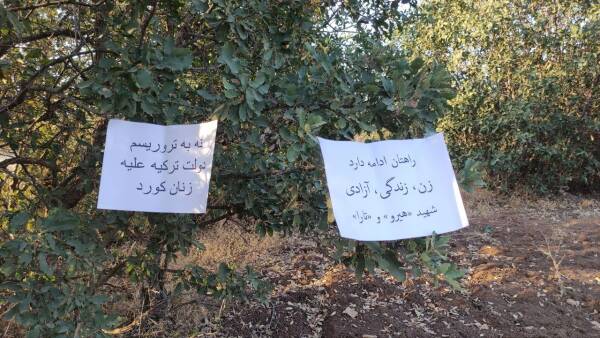 نه به تروریسم
دولت ترکیه علیه
زنان کورد
راهتان ادامه دارد
زن، زندگی، آزادی
شهید «هیرو» و «تارا»